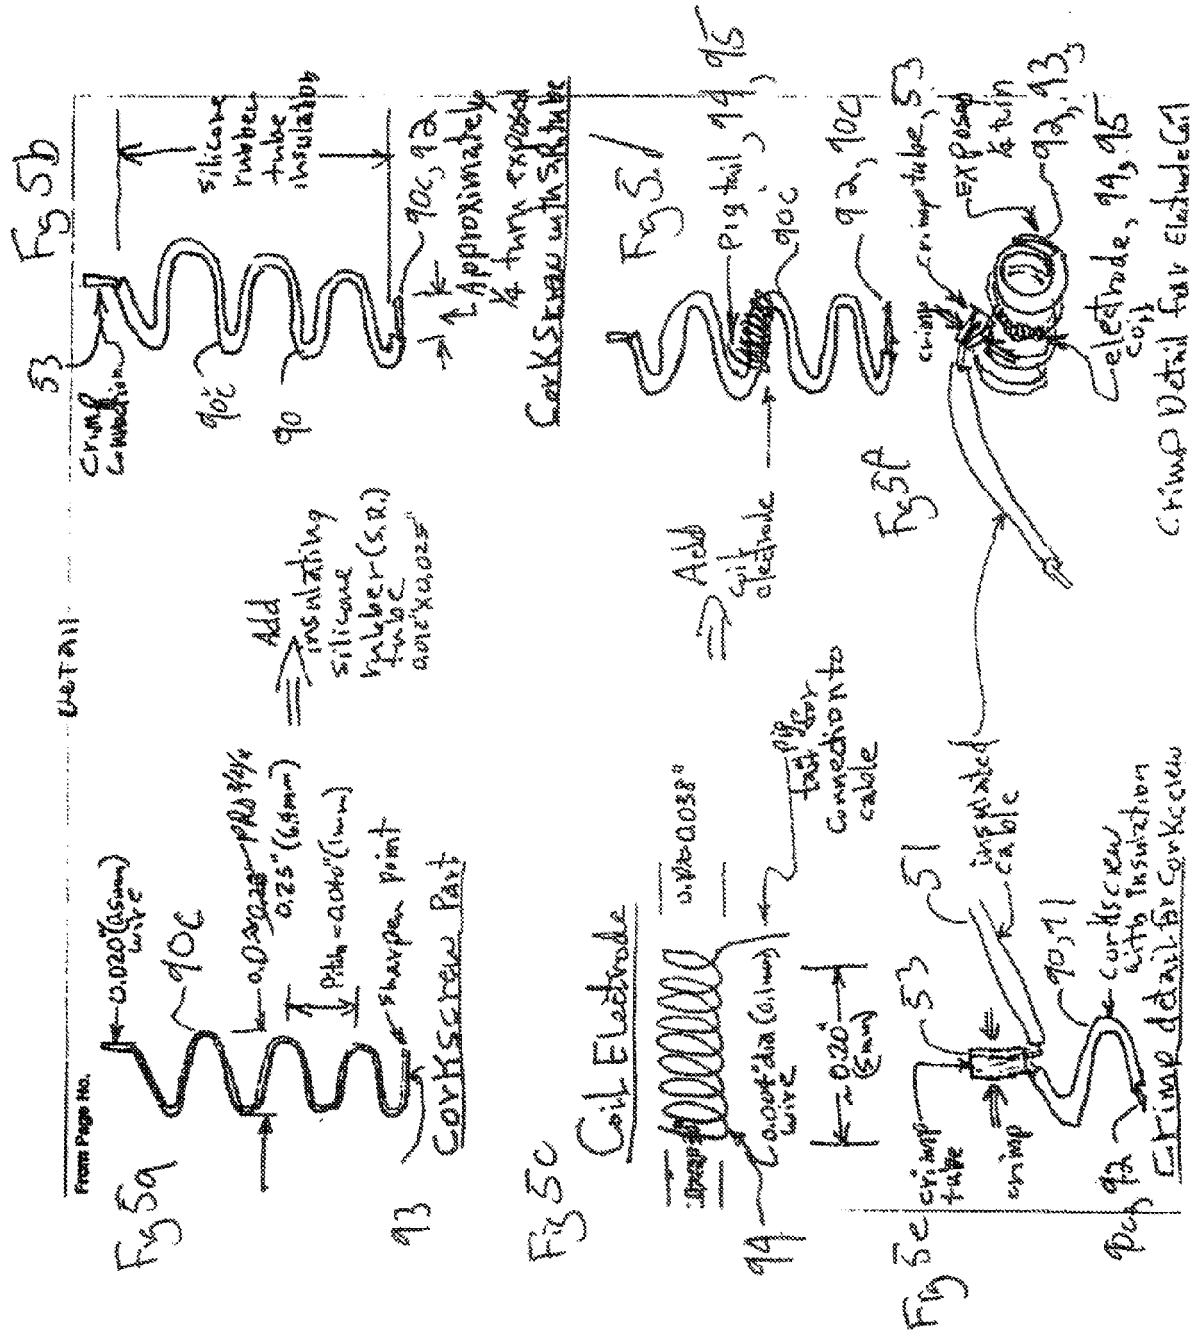 From Page No.
Detail
Fig 5a
0.020" (0.5mm)
wire
90c
0.25" (6.4mm)
Pitch ~0.040" (1mm)
sharpen point
93
Corkscrew Part
Add
insulating
silicone
rubber (S.R.)
tube
0.012" x 0.025"
Fig 5b
53
Crimp
Connection
silicone
rubber
tube
insulator
90c
90
90c, 92
Approximately
1/4 turn exposed
Corkscrew with S.R. tube
Fig 5c
Coil Electrode
94
0.004" dia (0.1mm)
wire
~0.20"
(5mm)
pig
tail for
connection to
cable
Add
coil
electrode
Pigtail, 94, 95
90c
92, 90c
Fig 5e
crimp
tube
53
51
crimp
insulated
cable
90, 91
Corkscrew
with Insulation
90c, 92
Crimp detail for Corkscrew
Fig 5f
crimp
crimp tube, 53
Exposed
1/4 turn
92, 93,
electrode, 94, 95
coil